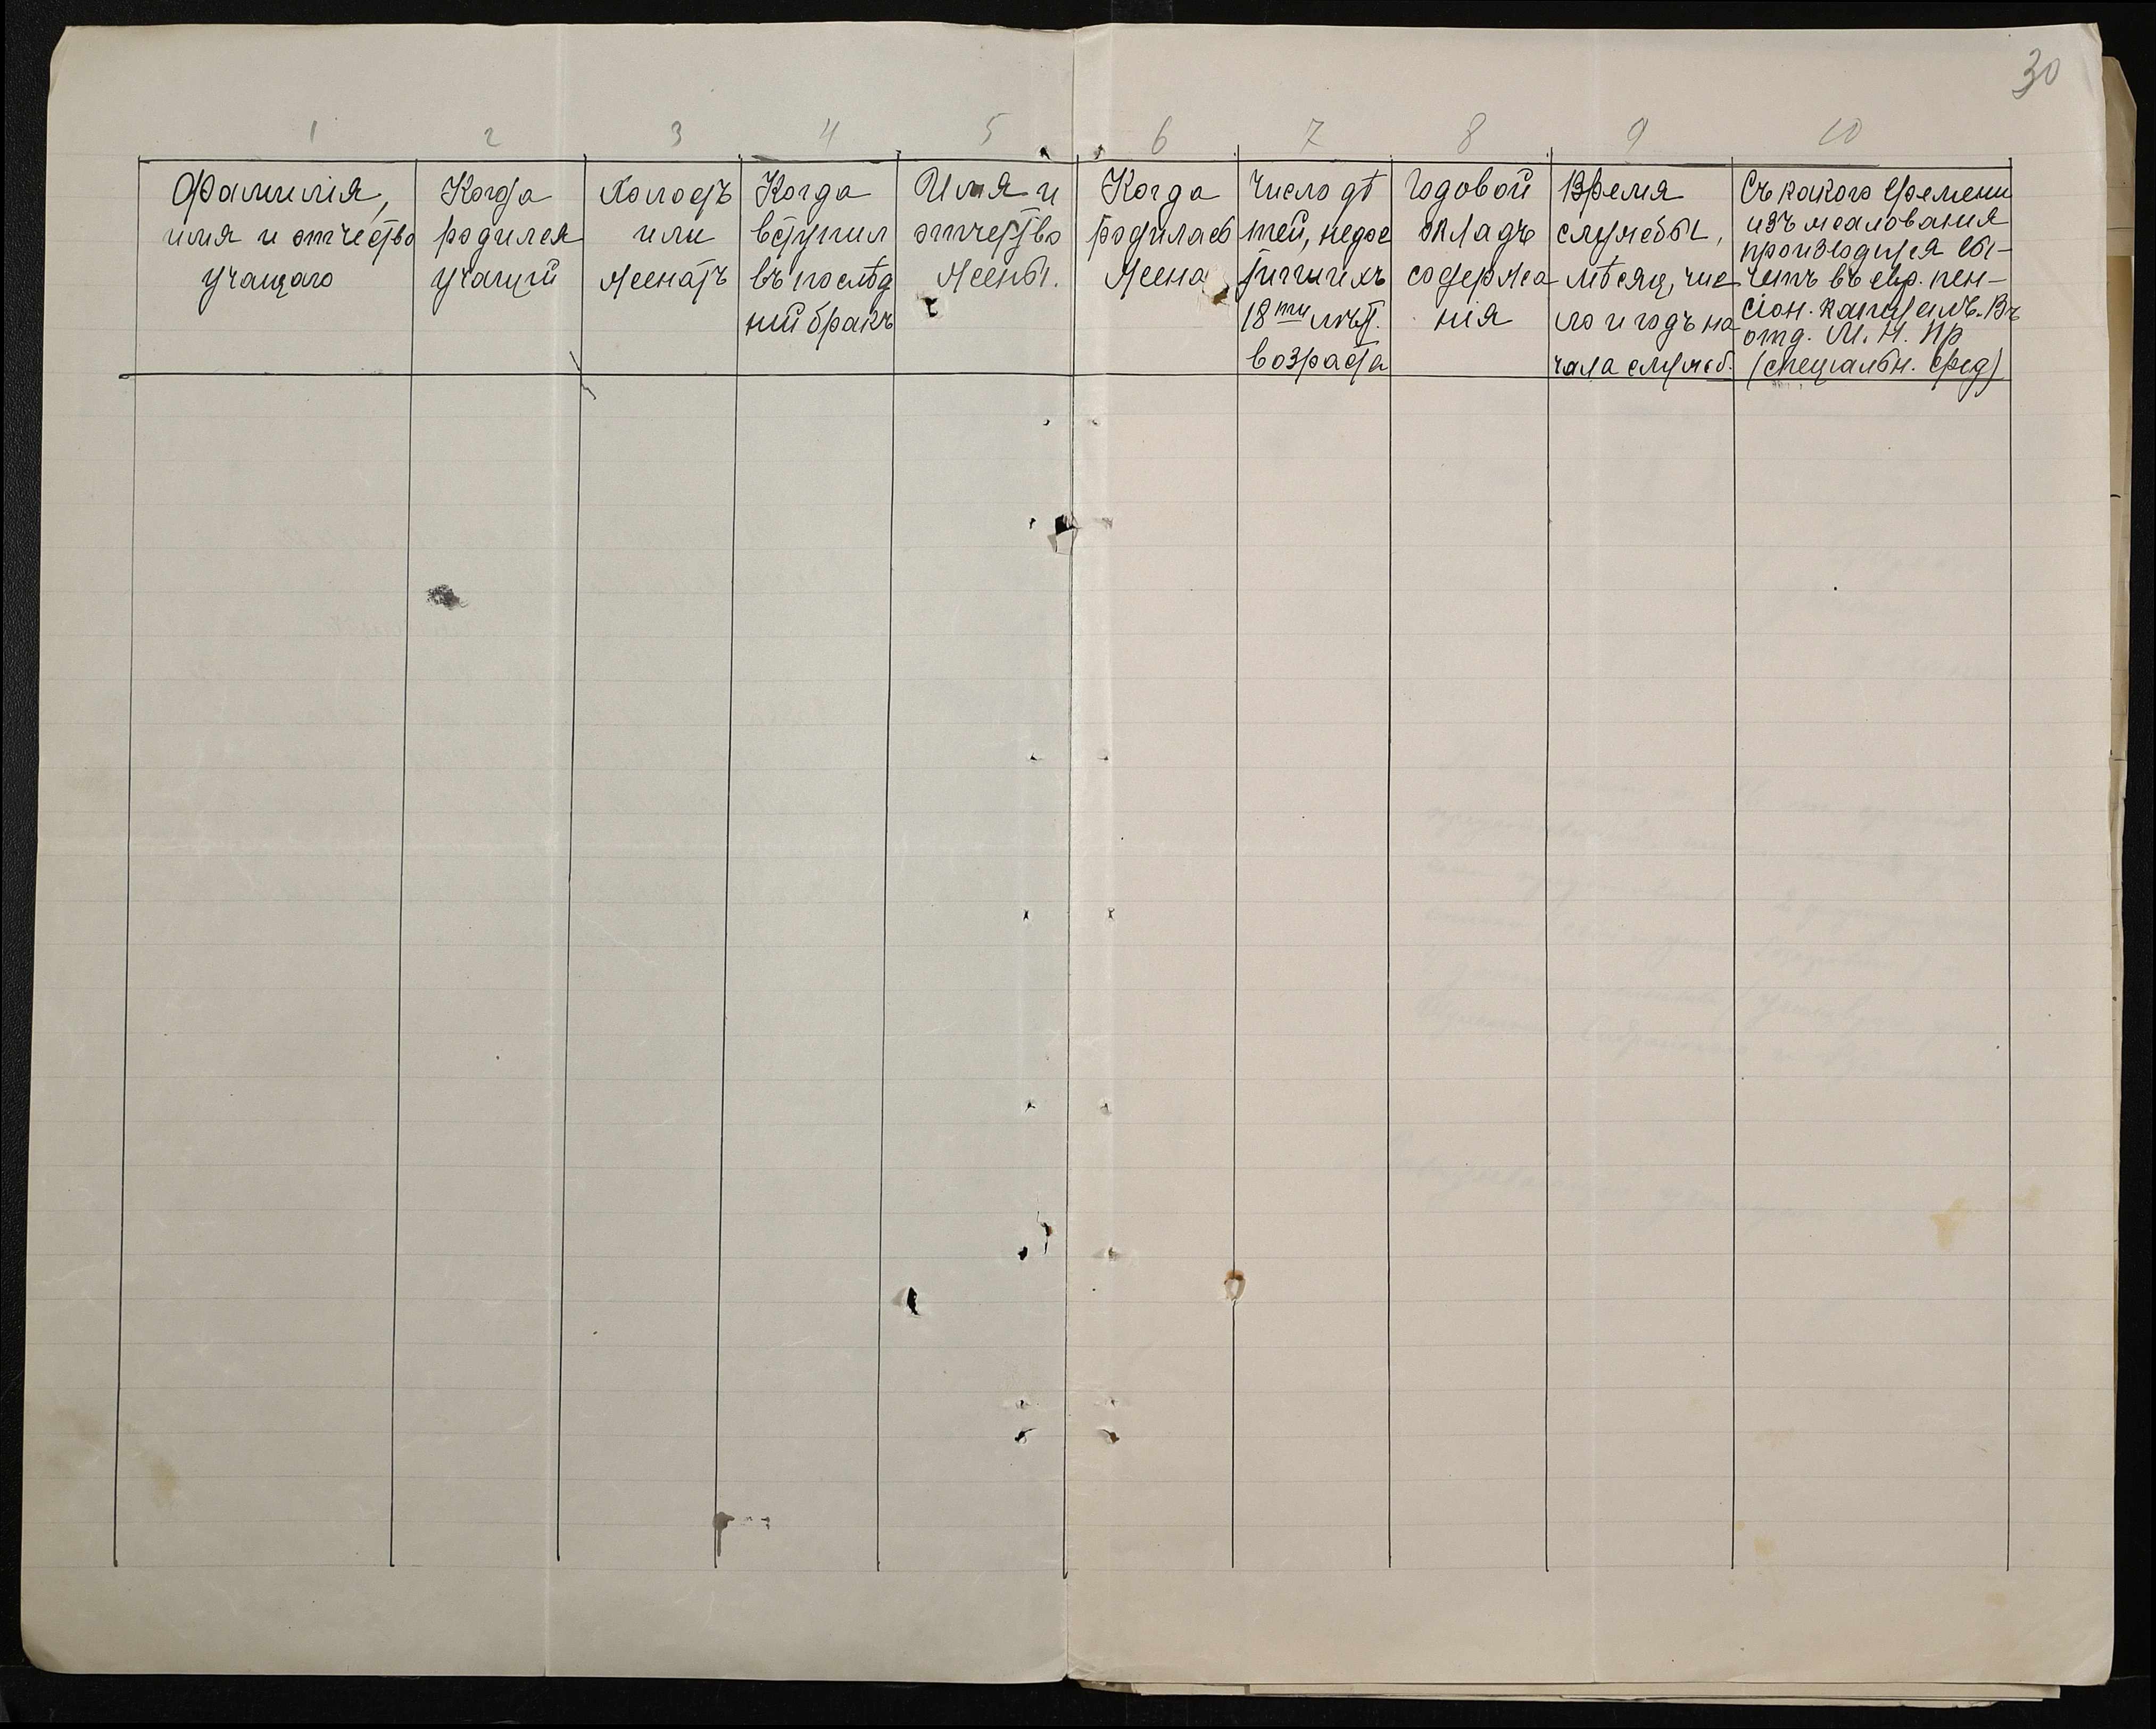 30
1 2 3 4 5 6 7 8 9 10
Фамилія,
имя и отчество
учащаго
Когда
родился
учащий
Холостъ
или
женатъ
Когда
вступил
въ послѣд
ний бракъ
Имя и
отчество
жены.
Когда
родилась
жена
Число дѣ
тей, недос
тигшихъ
18ти лѣт.
возраста
Годовой
окладъ
содержа
нія
Время
службы,
мѣсяц, чис
ло и годъ на
чала служб.
Съ какого времени
изъ жалования
производится вы-
четъ въ евр. пен-
сіон. капиталъ. Въ
отд. М. Н. Пр
(спеціальн. сред)